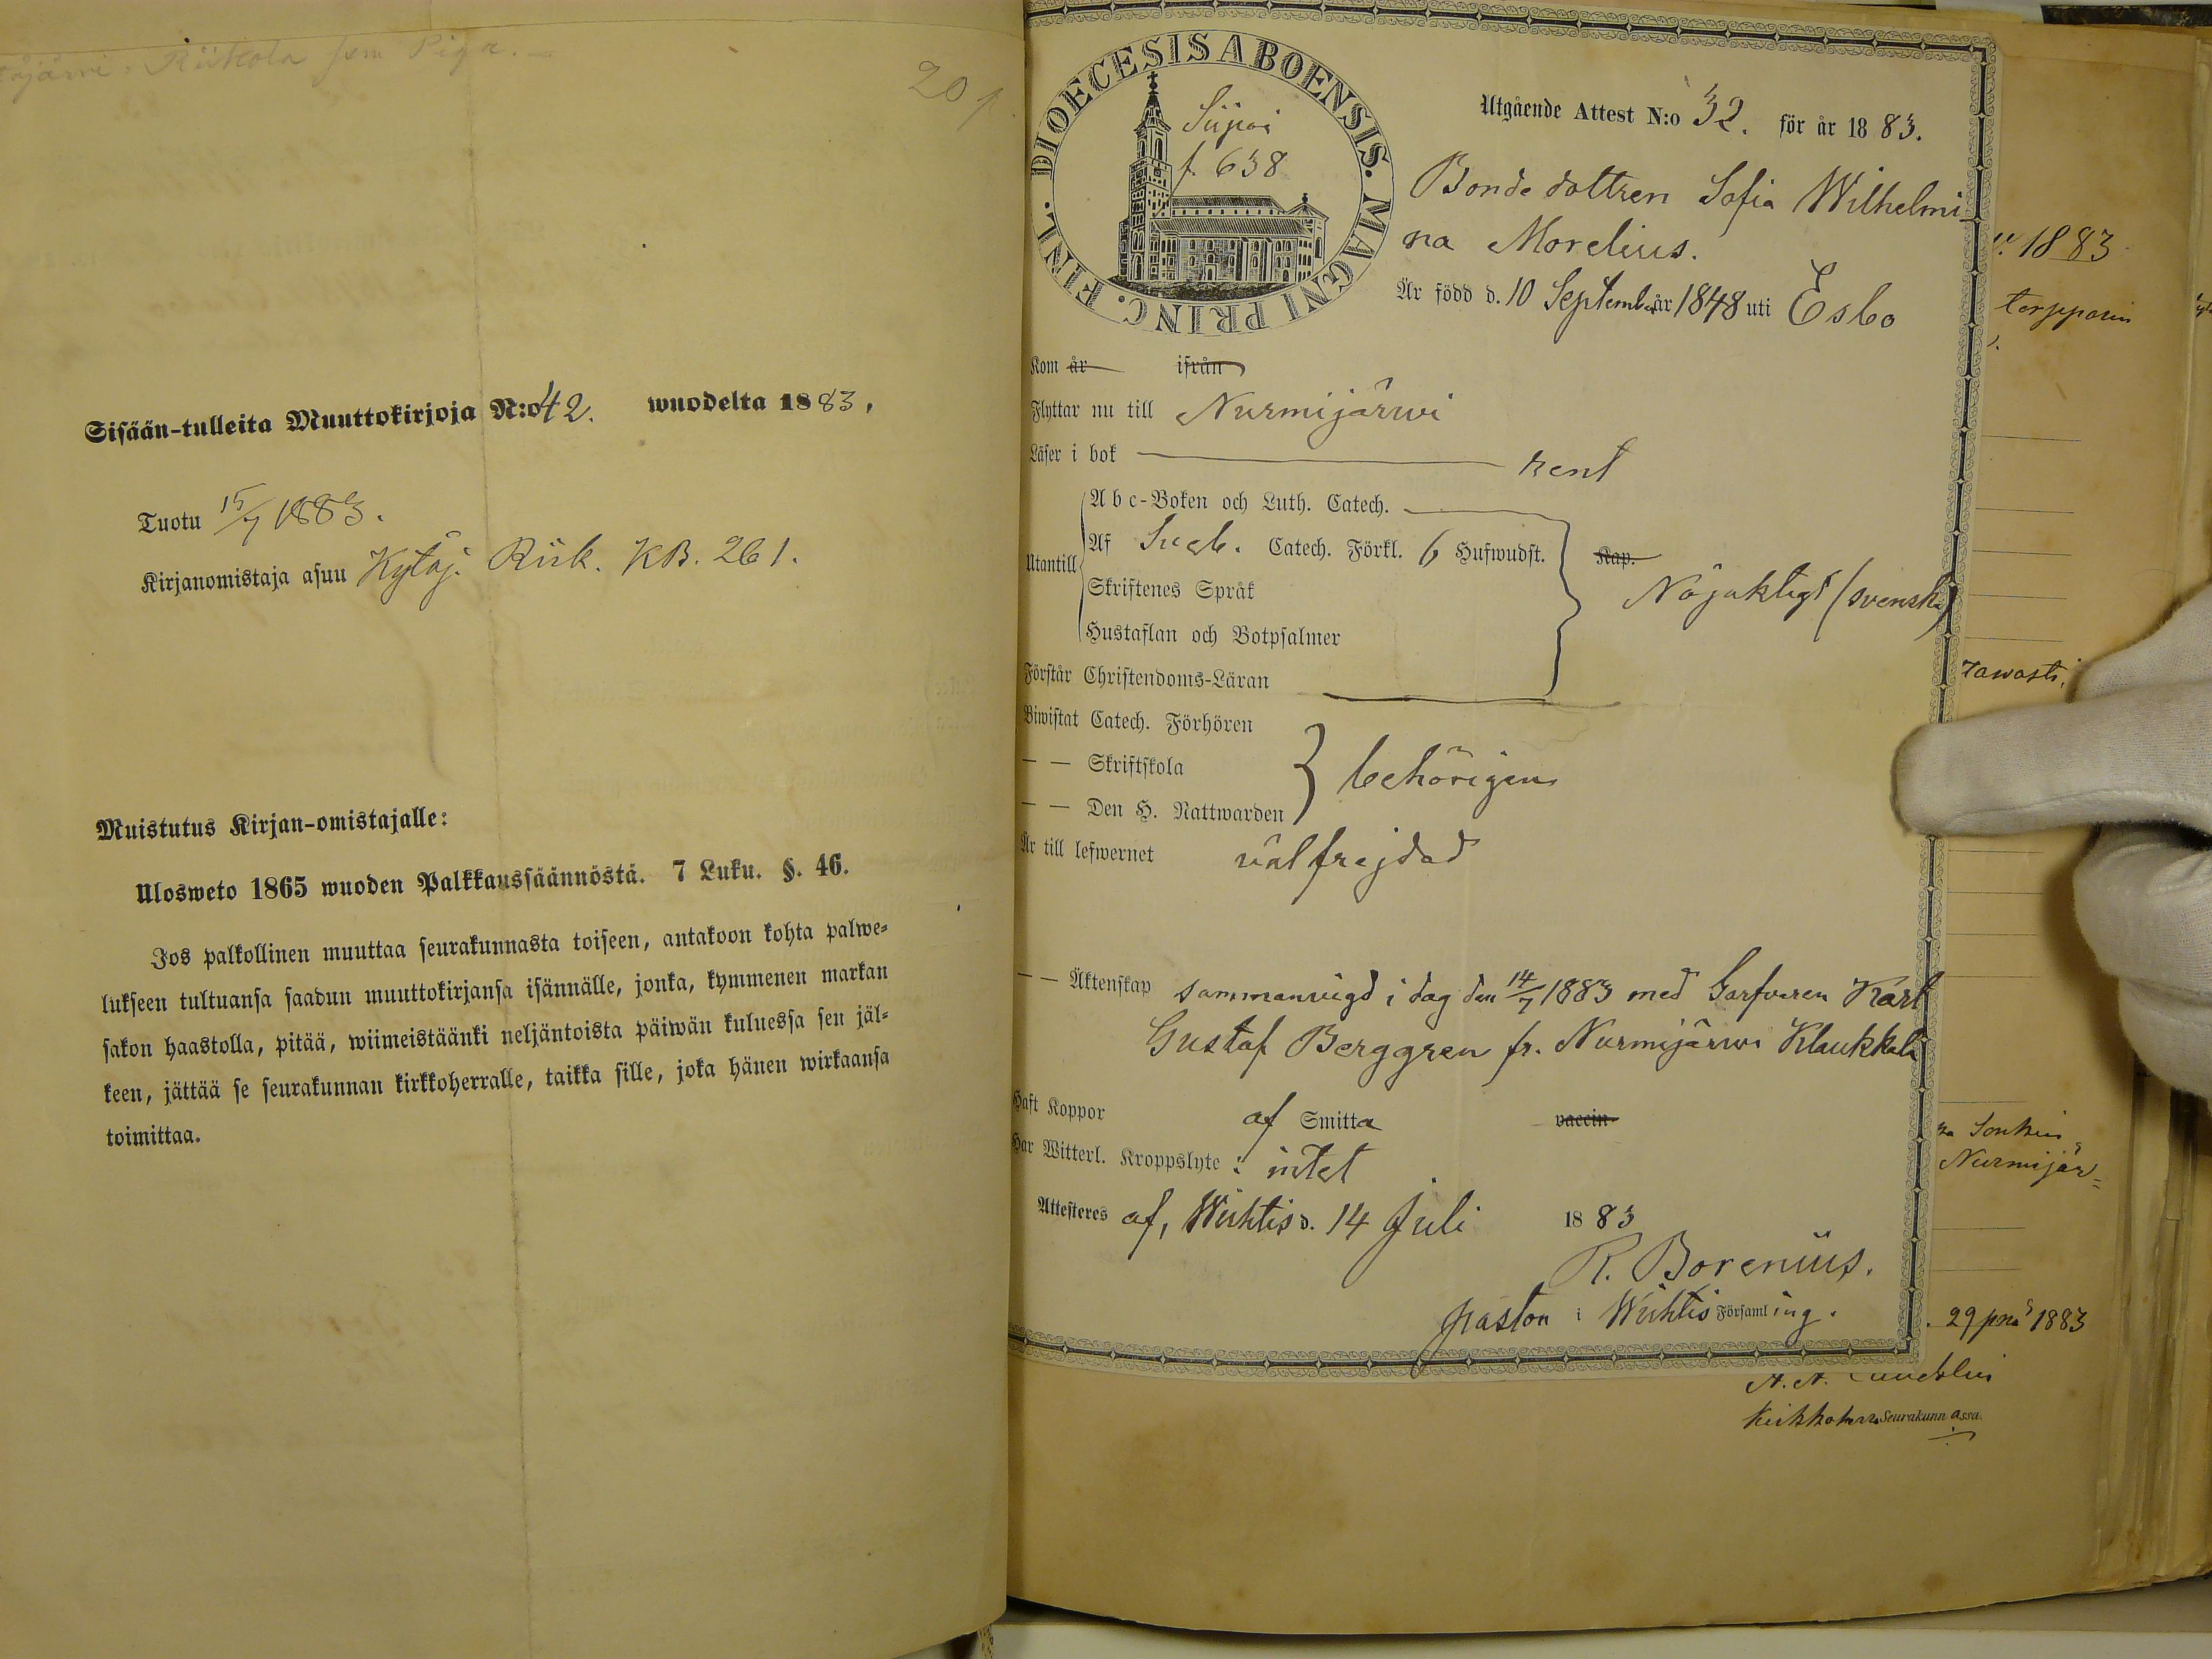 Riikola som Piga.
20
Sisään-tulleita Muuttokirjoja N:o 42. wuodelta 1883.
Tuotu 15/7 1883.
Kirjanomistaja asuu Kytäj. Riik. KB. 261.
Muistutus Kirjan-omistajalle:
Ulosweto 1865 wuoden Palkkaussäännöstä. 7 Luku. §. 46.
Jos palkollinen muuttaa seurakunnasta toiseen, antakoon kohta palwe-
lukseen tultuansa saadun muuttokirjansa isännälle, jonka, kymmenen markan
sakon haastolla, pitää, wiimeistäänki neljäntoista päiwän kuluessa sen jäl-
keen, jättää se seurakunnan kirkkoherralle, taikka sille, joka hänen wirkaansa
toimittaa.
DIOECESIS ABOENSIS. MAGNI PRINC. FINL.
f. 638
Utgående Attest N:o 32. för år 1883.
Bondedottren Sofia Wilhelmi-
na Morelius.
Är född d. 10 September år 1848 uti Esbo
Kom år ifrån
Flyttar nu till Nurmijärwi
Läser i bok rent
Utantill
A b c-Boken och Luth. Catech.
Af Sveb. Catech. Förkl. 6 Hufwudst. Kap.
Skriftenes Språk
Nöjaktigt (svenska)
Hustaflan och Botpsalmer
Förstår Christendoms-Läran
Biwistat Catech. Förhören
— — Skriftskola behörigen
— — Den H. Nattwarden
Är till lefwernet välfrejdad
— — Äktenskap sammanvigd i dag den 14/7 1883 med Garfvaren Karl
Gustaf Berggren fr. Nurmijärwi Klaukkala
Haft Koppor af Smitta vaccin
Har Witterl. Kroppslyte: intet
Attesteres af, Wichtis d. 14 Juli 1883
R. Borenius.
pastor i Wichtis Församling.
1883
torpparin
Nurmijär-
29 p:nä 1883
A. A.
Kirkkoherra Seurakunnassa.